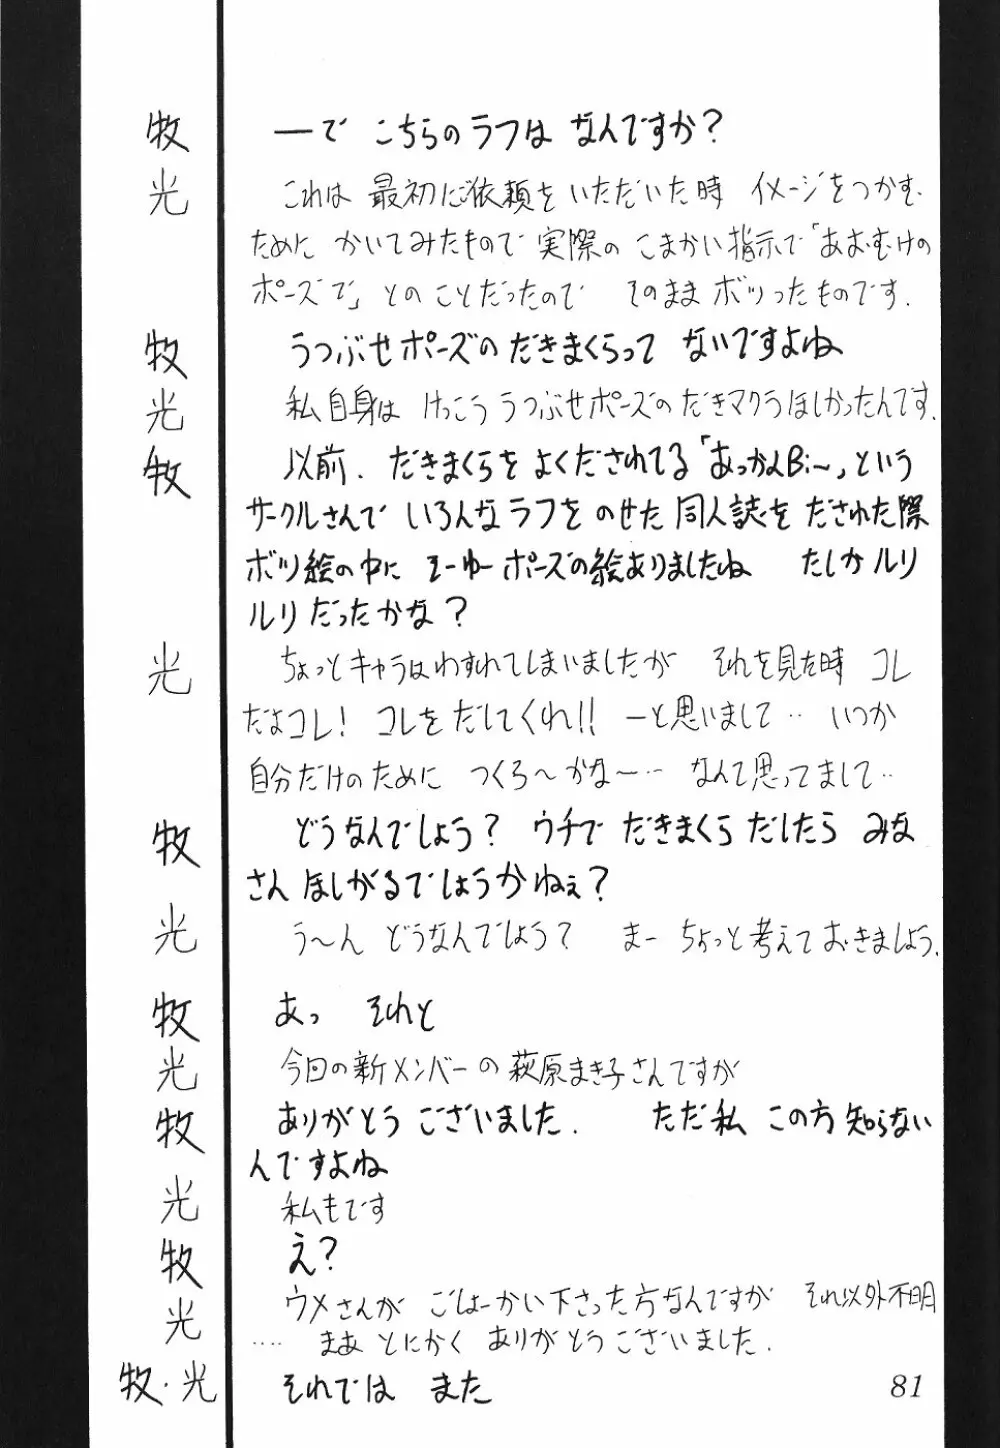 牧 ―で こちらのラフは なんですか?
光 これは 最初にご依頼をいただいた時 イメージをつかむ
ために かいてみたもので 実際の こまかい指示で「あおむけの
ポーズで」とのことだったので そのままボツったものです.
牧 うつぶせポーズの だきまくらって ないですよね
光 私自身は けっこう うつぶせポーズの だきマクラ ほしかったんです.
牧 以前. だきまくらを よくだされてる「あっかんBi〜」という
サークルさんで いろんなラフを のせた 同人誌を だされた際
ボツ絵の中に そーゆーポーズの絵ありましたね たしかルリ
ルリだったかな?
光 ちょっとキャラはわすれてしまいましたが それを見た時 コレ
だよコレ! コレをだしてくれ!! ーと思いまして‥ いつか
自分だけのために つくろ〜かな〜‥ なんて思ってまして‥
牧 どうなんでしょう? ウチで だきまくら だしたら みな
さん ほしがるでしょうかねぇ?
光 う〜ん どうなんでしょう? まー ちょっと考えておきましょう.
牧 あっ それと
光 今回の新メンバーの萩原まき子さんですが
牧 ありがとうございました. ただ私 この方知らない
んですよね
光 私もです
牧 え?
光 ウメさんが ごしょーかい下さった方なんですが それ以外不明
‥‥ まあ とにかく ありがとうございました.
牧・光 それでは また
81